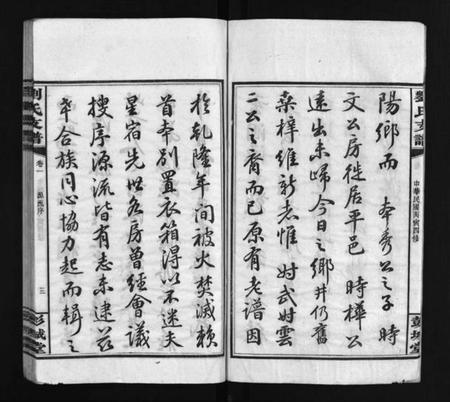 劉氏支譜
中華民國丙寅四修
彭城堂
陽鄉而　奉秀公之子　時
文公房徙居平邑　時樺公
遠出未歸今日之鄉井仍舊
桑梓維新者惟　時武時雲
二公之裔而已原有老譜因
於乾隆年間被火焚滅賴
首本別置衣箱得以不迷夫
星宿先世各房曾經會議
搜序源流皆有志未逮茲
年合族同心協力起而輯之
劉氏支譜
卷一
源流序
三
彭城堂